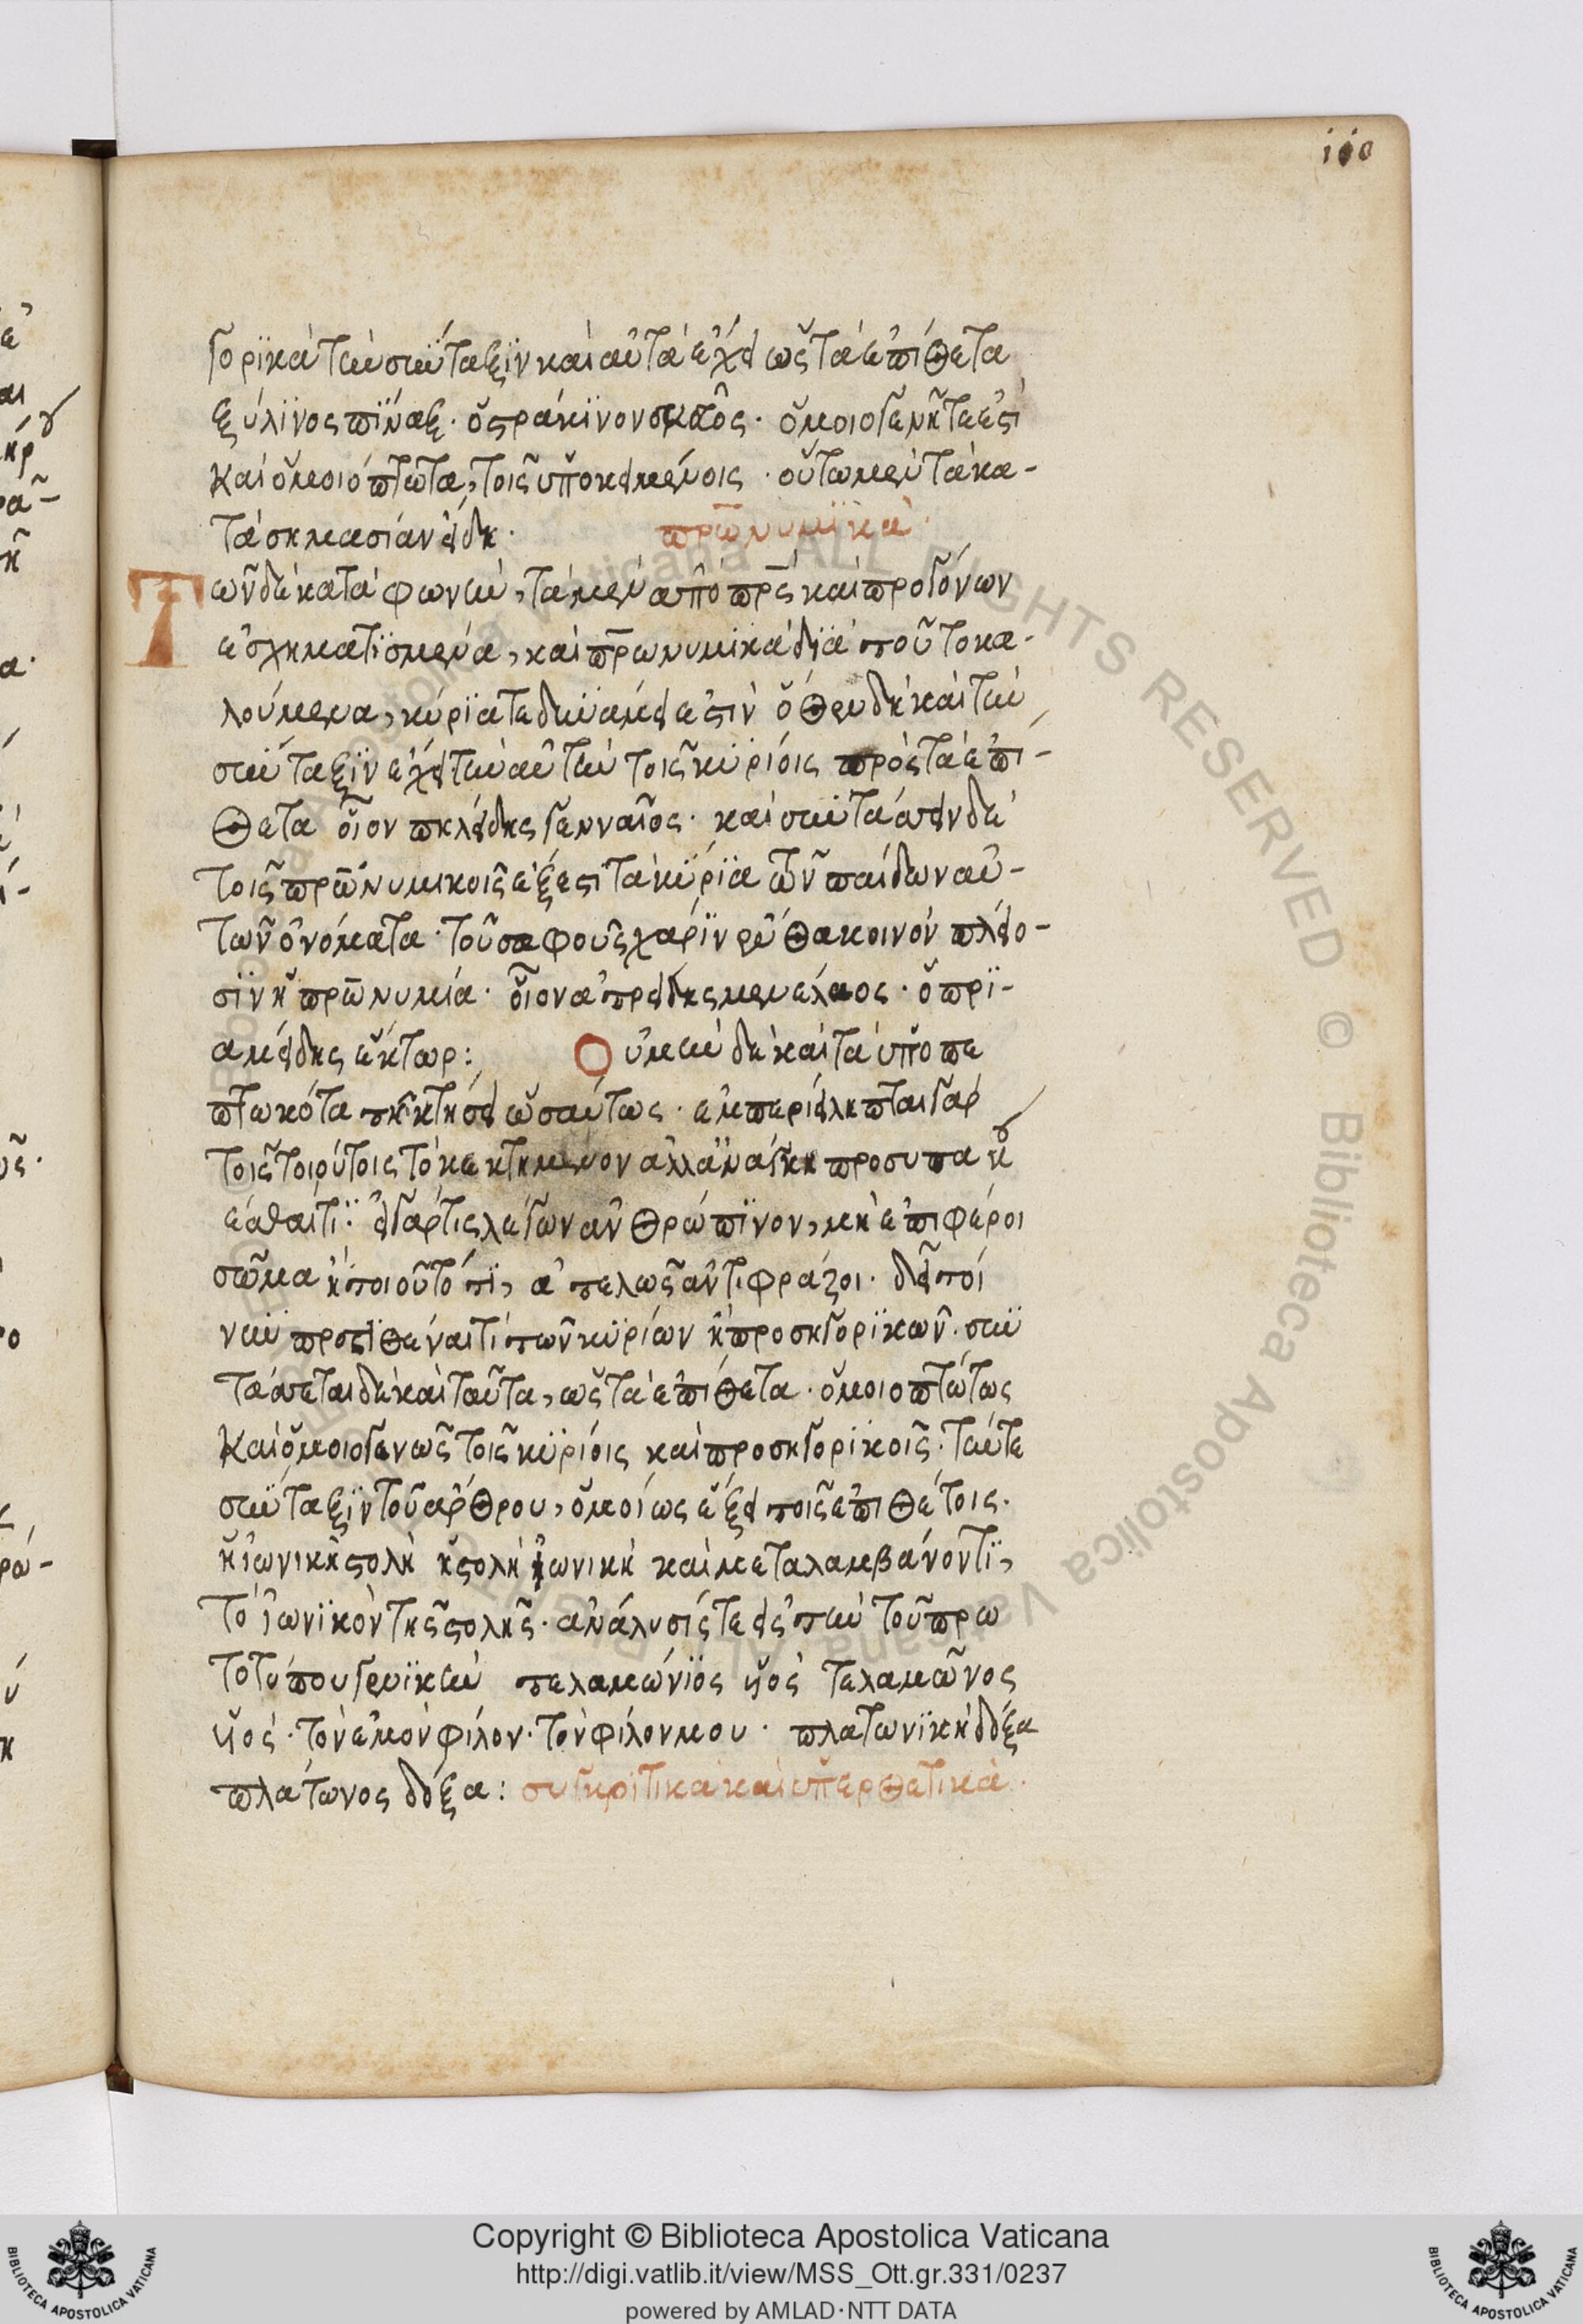 110
γορϊκὰ τὴν σύνταξϊν καὶ αὐτὰ ἔχει ὡς τὰ ἐπίθετα
ξύλϊνος πίναξ· ὀστράκϊνον σκεῦος· ὁμοιογενῆ τε ἐστὶ
καὶ ὁμοιόπτωτα, τοῖς ὑποκειμένοις· οὕτω μὲν τὰ κα-
τὰ σημασίαν εἴδη· πρωνυμϊκά·
Τῶν δὲ κατὰ φωνὴν, τὰ μὲν ἀπὸ πρς καὶ προγόνων
ἐσχηματϊσμένα, καὶ πρωνυμϊκὰ δϊὰ τοῦτο κα-
λούμενα, κύρϊα τε δυνάμει ἐστὶν ὅθεν δὴ καὶ τὴν
σύνταξϊν ἔχει τὴν αὐτὴν τοῖς κυρίοις πρὸς τὰ ἐπί-
θετα οἷον πηλείδης γενναῖος· καὶ συντάττειν δὲ
τοῖς πρωνυμικοῖς ἔξεστι τὰ κύρϊα τῶν παίδων αὐ-
τῶν ὀνόματα· τοῦ σαφοῦς χάρϊν ἔνθα κοινὸν πλείο-
σϊν ἡ πρωνυμία· οἷον ἀτρείδης μενέλαος· ὁ πρϊ-
αμείδης ἕκτωρ: Ου μὴν δὲ καὶ τὰ ὑποπε
πτωκότα τῆ κτήσει ὡσαύτως· ἐμπεριείληπται γὰρ
τοῖς τοιούτοις τὸ κεκτημένον ἀλλ' ἀνάγκη προσυπακού
εσθαί τϊ· εἰ γάρ τις λέγων ἀνθρώπϊνον, μὴ ἐπιφέροι
σῶμα ἢ τοιοῦτό τϊ, ἀτελῶς ἂν τι φράζοι· δεῖ τοί
νυν προστϊθέναι τὶ τῶν κυρίων ἢ προσηγορϊκῶν· συν
τάττεται δὲ καὶ ταῦτα, ὡς τὰ ἐπίθετα· ὁμοιοπτώτως
καὶ ὁμοιογενῶς τοῖς κυρίοις καὶ προσηγορικοῖς· τήν τε
σύνταξϊν τοῦ ἄρθρου, ὁμοίως ἕξει τοῖς ἐπιθέτοις·
ἡ ἰωνικὴ στολὴ ἡ στολὴ ἡ ἰωνικὴ καὶ μεταλαμβάνοντϊ,
τὸ ἰωνϊκὸν τῆς στολῆς· ἀνάλυσίς τε εἰς τὴν τοῦ πρω
τοτύπου γενϊκὴν τελαμώνϊος υἱὸς τελαμῶνος
υἱός· τὸν ἐμὸν φίλον· τὸν φίλον μου· πλατωνϊκὴ δόξα
πλάτωνος δόξα: συγκρϊτικὰ καὶ ὑπερθετικά·
Copyright © Biblioteca Apostolica Vaticana
http://digi.vatlib.it/view/MSS_Ott.gr.331/0237
powered by AMLAD·NTT DATA